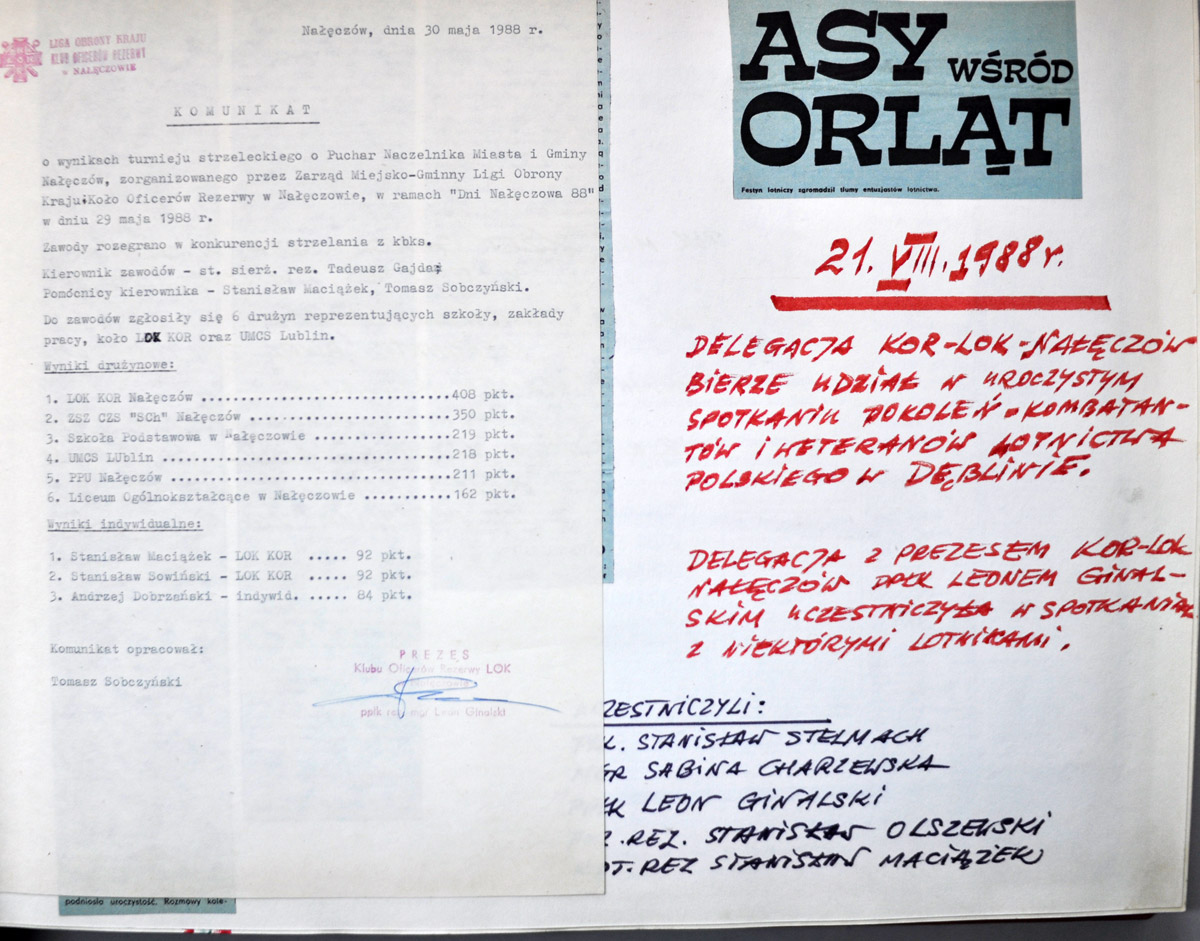 Nałęczów, dnia 30 maja 1988 r.
LIGA OBRONY KRAJU
KLUB OFICERÓW REZERWY
w NAŁĘCZOWIE
KOMUNIKAT
o wynikach turnieju strzeleckiego o Puchar Naczelnika Miasta i Gminy
Nałęczów, zorganizowanego przez Zarząd Miejsko-Gminny Ligi Obrony
Kraju i Koło Oficerów Rezerwy w Nałęczowie, w ramach "Dni Nałęczowa 88"
w dniu 29 maja 1988 r.
Zawody rozegrano w konkurencji strzelania z kbks.
Kierownik zawodów - st. sierż. rez. Tadeusz Gajda
Pomócnicy kierownika - Stanisław Maciążek, Tomasz Sobczyński.
Do zawodów zgłosiły się 6 drużyn reprezentujących szkoły, zakłady
pracy, koło LOK KOR oraz UMCS Lublin.
Wyniki drużynowe:
1. LOK KOR Nałęczów ..............................408 pkt.
2. ZSZ CZS "SCh" Nałęczów ........................350 pkt.
3. Szkoła Podstawowa w Nałęczowie ................219 pkt.
4. UMCS LUblin ...................................218 pkt.
5. PPU Nałęczów ..................................211 pkt.
6. Liceum Ogólnokształcące w Nałęczowie ...........162 pkt.
Wyniki indywidualne:
1. Stanisław Maciążek - LOK KOR ..... 92 pkt.
2. Stanisław Sowiński - LOK KOR ..... 92 pkt.
3. Andrzej Dobrzański - indywid. ..... 84 pkt.
Komunikat opracował:
Tomasz Sobczyński
PREZES
Klubu Oficerów Rezerwy LOK
ppłk rez. mgr Leon Ginalski
podniosła uroczystość. Rozmowy kole-
ASY WŚRÓD
ORLĄT
Festyn lotniczy zgromadził tłumy entuzjastów lotnictwa.
21. VIII. 1988r.
DELEGACJA KOR-LOK-NAŁĘCZÓW
BIERZE UDZIAŁ W UROCZYSTYM
SPOTKANIU POKOLEŃ-KOMBATAN-
TÓW I WETERANÓW LOTNICTWA
POLSKIEGO W DĘBLINIE.
DELEGACJA Z PREZESEM KOR-LOK
NAŁĘCZÓW PPŁK LEONEM GINAL-
SKIM UCZESTNICZYŁA W SPOTKANIU
Z NIEKTÓRYMI LOTNIKAMI.
ZESTNICZYLI:
STANISŁAW STELMACH
GR SABINA CHARZEWSKA
ŁK LEON GINALSKI
.REZ. STANISŁAW OLSZEWSKI
OT.REZ STANISŁAW MACIĄŻEK